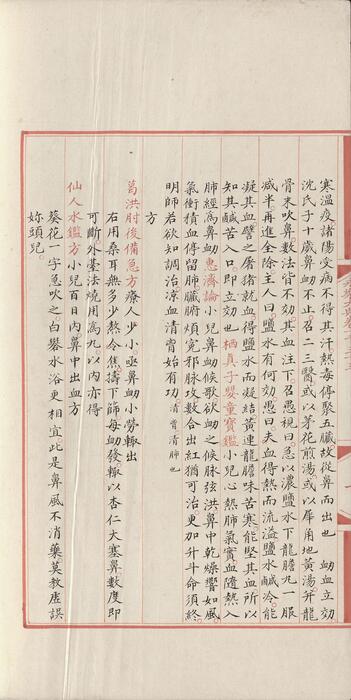 寒溫疫諸陽受病不得其汗熱毒停聚五臟故從鼻而出也 衂血立効
沈氏子十歲鼻衂不止召二三醫或以茅花煎湯或以犀角地黃湯并龍
骨末吹鼻數法皆不効其血注下召愚視曰急以濃鹽水下龍膽丸一服
減半再進全除主人曰鹽水有何効愚曰夫血得熱而流溢鹽水鹹冷能
凝其血譬之屠猪就血得鹽水而凝結黃連龍膽味苦寒能堅其血所以
知其鹹苦入口即立効也栖真子嬰童寶鑑小兒心熱肺氣實血隨熱入
肺經為鼻衂惠濟論小兒鼻衂候歌欲衂之候脉弦洪鼻中乾燥響如風
氣衝積血停留肺臟腑煩寃邪脉攻數合出紅猶可治更加升斗命須終
明師若欲知調治涼血清胷始有功清胷清肺也
方
葛洪肘後備急方療人少小亟鼻衂小勞輒出
右用桑耳無多少熬令焦擣下篩每衂發輒以杏仁大塞鼻數度即
可斷外臺法燒用為丸以内亦得
仙人水鑑方小兒百日内鼻中出血方
葵花一字急吹之白礬水浴更相宜此是鼻風不消藥莫教虛誤
妳頭兒